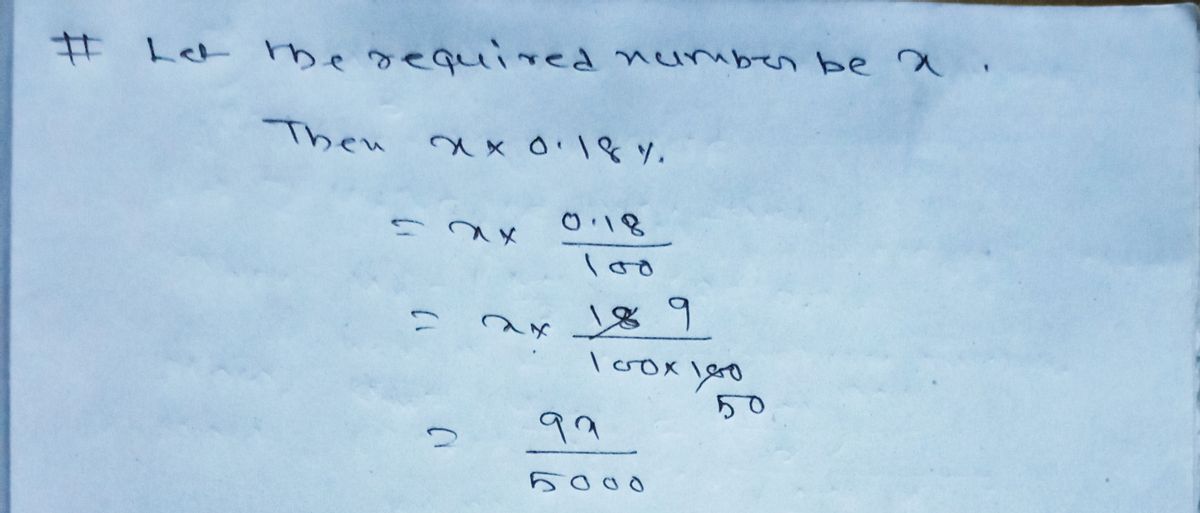 # Let the required number be x.
Then x × 0.18 %.
= x × 0.18/100
= x × 18 9/100×100 50
= 9x/5000